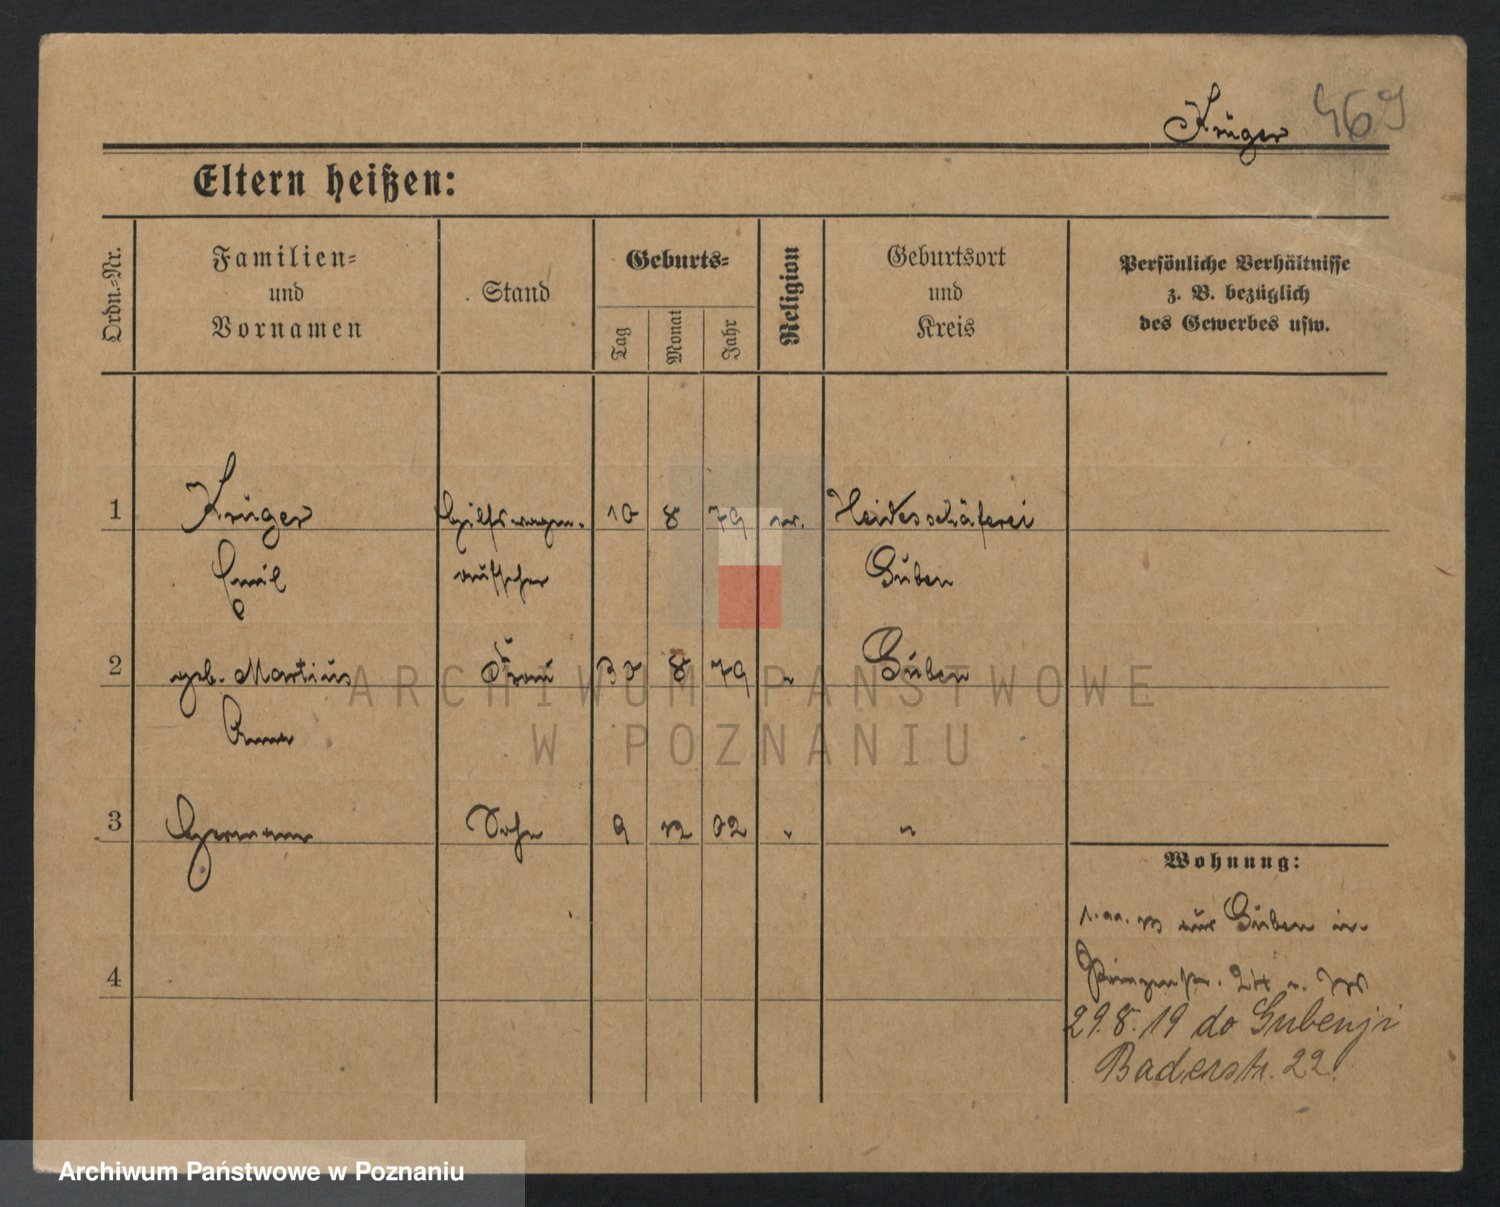 Krüger 469
Eltern heißen:
Ordn.-Nr.
Familien-
und
Vornamen
Stand
Geburts-
Tag
Monat
Jahr
Religion
Geburtsort
und
Kreis
Persönliche Verhältnisse
z. B. bezüglich
des Gewerbes usw.
1 Krüger Hilfswagen- 10 8 79 Heideschäferei
Emil Guben
2 geb. Martius Frau 30 8 79 " Guben
Anna
3 Hermann Sohn 9 12 02 " "
Wohnung:
aus Guben in
4
Prinzenstr. 24
29.8.19 do Gubenji
Baderstr. 22.
ARCHIWUM PAŃSTWOWE
W POZNANIU
Archiwum Państwowe w Poznaniu